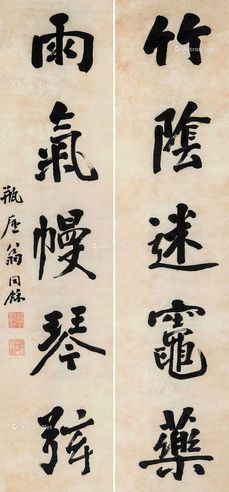 竹陰迷竈藥
雨氣幔琴弦
瓶廬翁同龢